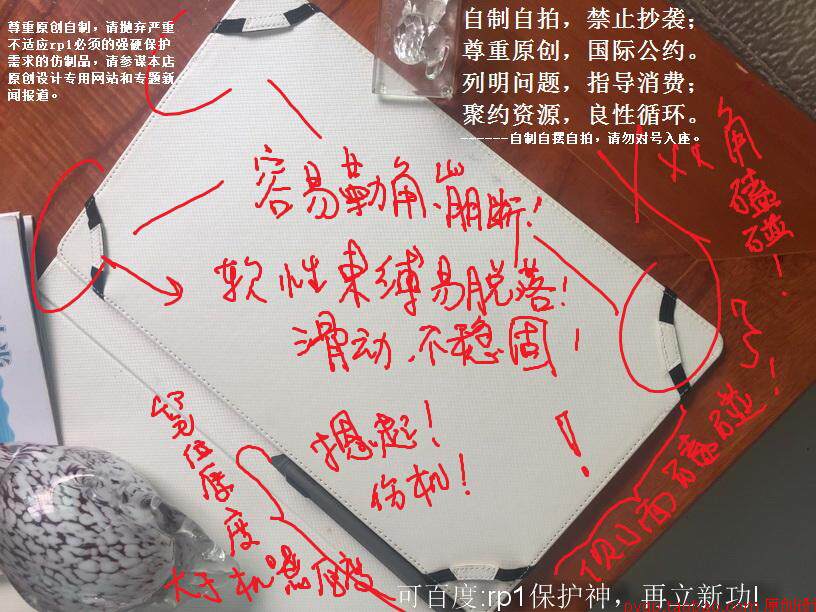 尊重原创自制，请抛弃严重
不适应rp1必须的强硬保护
需求的仿制品，请参谋本店
原创设计专用网站和专题新
闻报道。
自制自拍，禁止抄袭；
尊重原创，国际公约。
列明问题，指导消费；
聚约资源，良性循环。
------自制自摆自拍，请勿对号入座。
容易勒角、崩断！
软性束缚易脱落！
滑动、不稳固！
角磕碰！
笔位厚度
大于机器厚度
伤机！
侧面磕碰！
可百度:rp1保护神，再立新功！